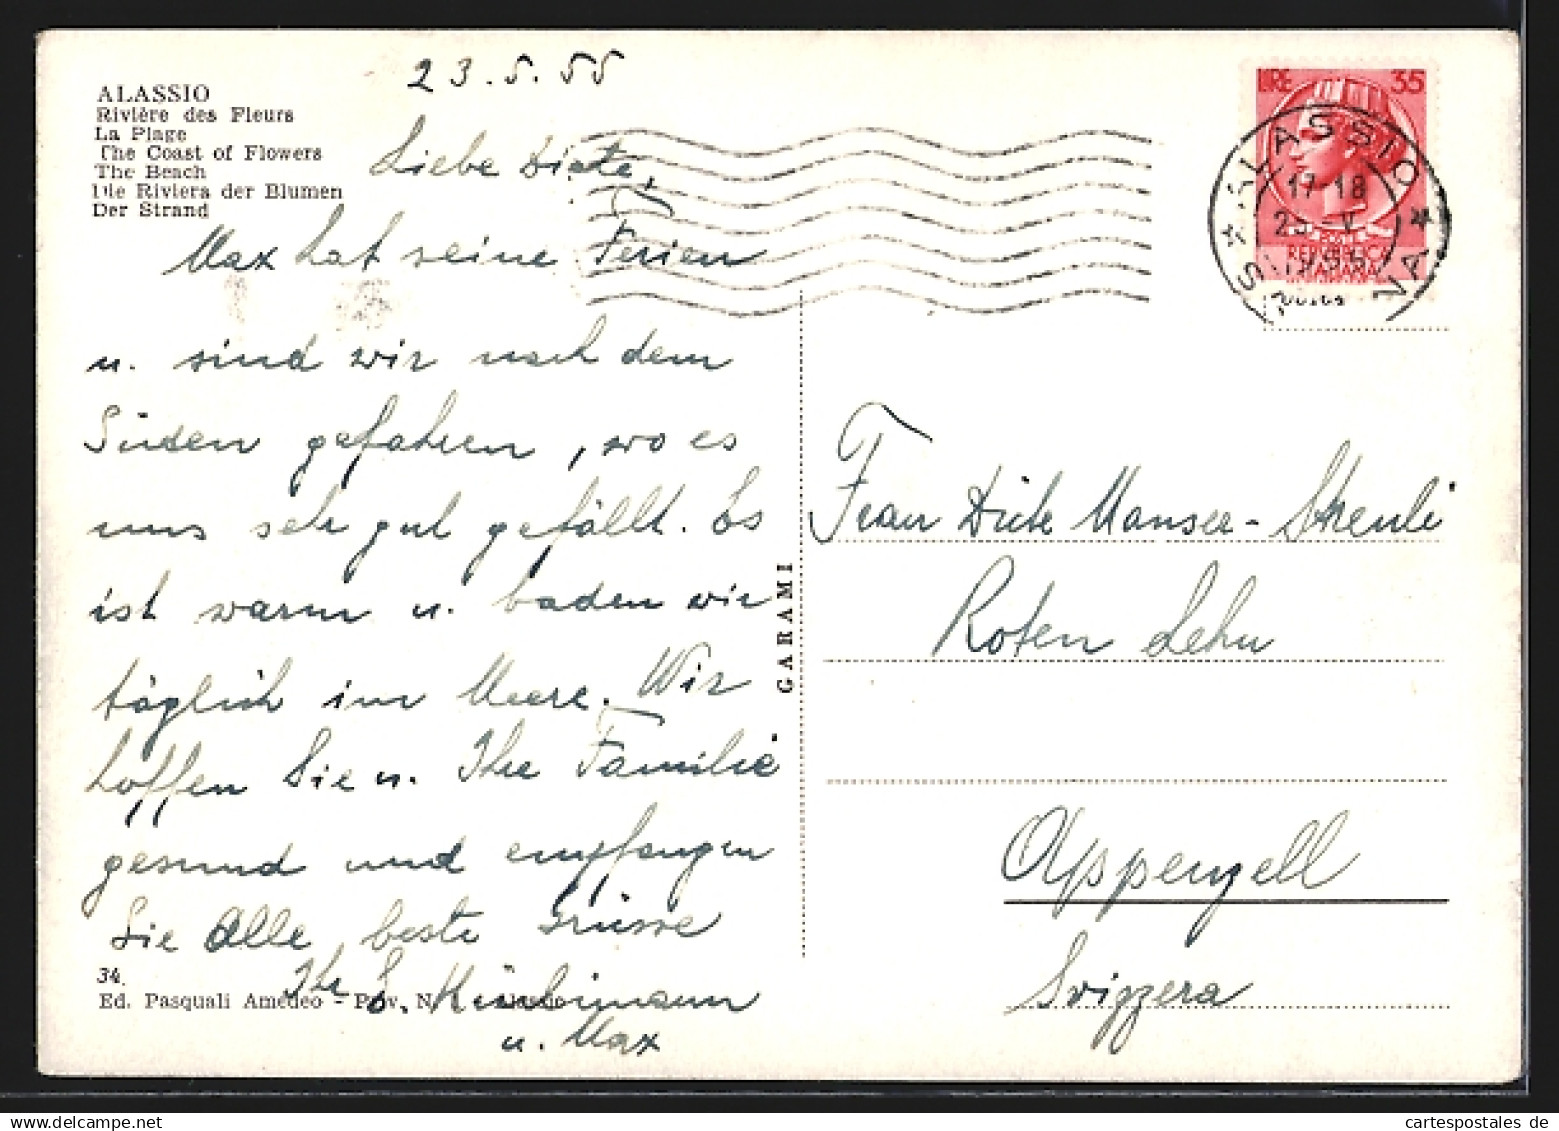 ALASSIO
Rivière des Fleurs
La Plage
The Coast of Flowers
The Beach
Die Riviera der Blumen
Der Strand
23.5.55
Liebe
Max hat seine Ferien
u. sind wir nach dem
Süden gefahren, wo es
uns sehr gut gefällt. Es
ist warm u. baden wir
täglich im Meere. Wir
hoffen Sie u. Ihre Familie
gesund und empfangen
Sie Alle, beste Grüsse
Ihr
u. Max
34.
Ed. Pasquali Amedeo - Alassio
GARAMI
LIRE 35
REPUBBLICA
ITALIANA
ALASSIO
17-18
V
SAVONA
Frau
Roten Lehn
Appenzell
Svizzera
cartespostales de